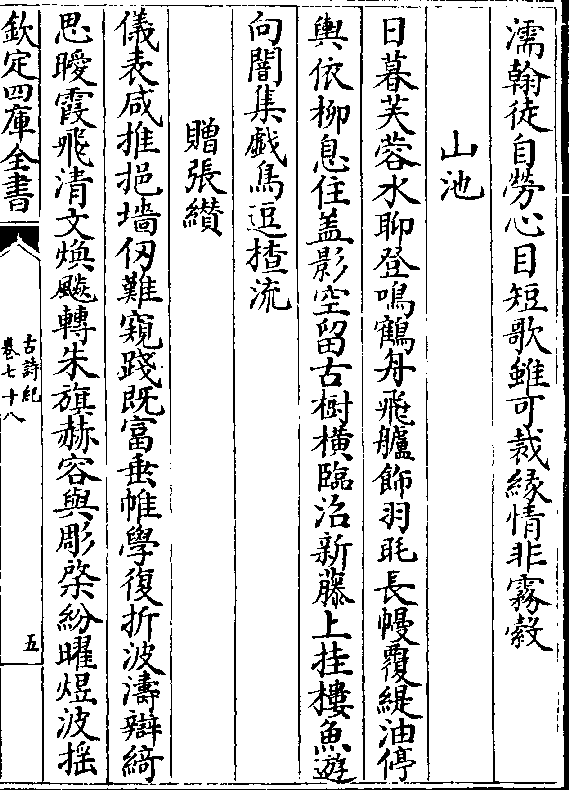 濡翰徒自勞心目短歌雖可裁緣情非霧縠
山池
日暮芙蓉水聊登鳴鶴舟飛艫飾羽毦長幔覆緹油停
輿依柳息住蓋影空留古樹橫臨沼新藤上挂樓魚遊
向闇集戯鳥逗楂流
贈張纉
儀表咸推挹墻仭難窺踐既富垂帷學復折波濤辯綺
思曖霞飛清文煥飈轉朱旗赫容與彫棨紛曜煜波揺
欽定四庫全書
古詩紀
卷七十八
五